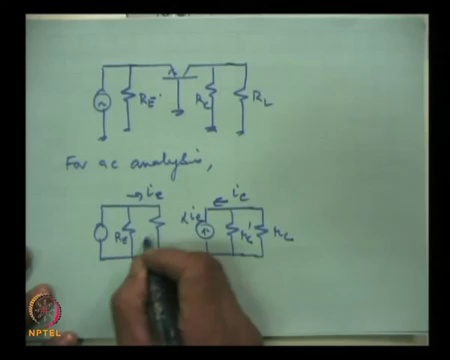 RE
RC
RL
For ac analysis,
ie
ic
αie
RE
rc'
rc
NPTEL